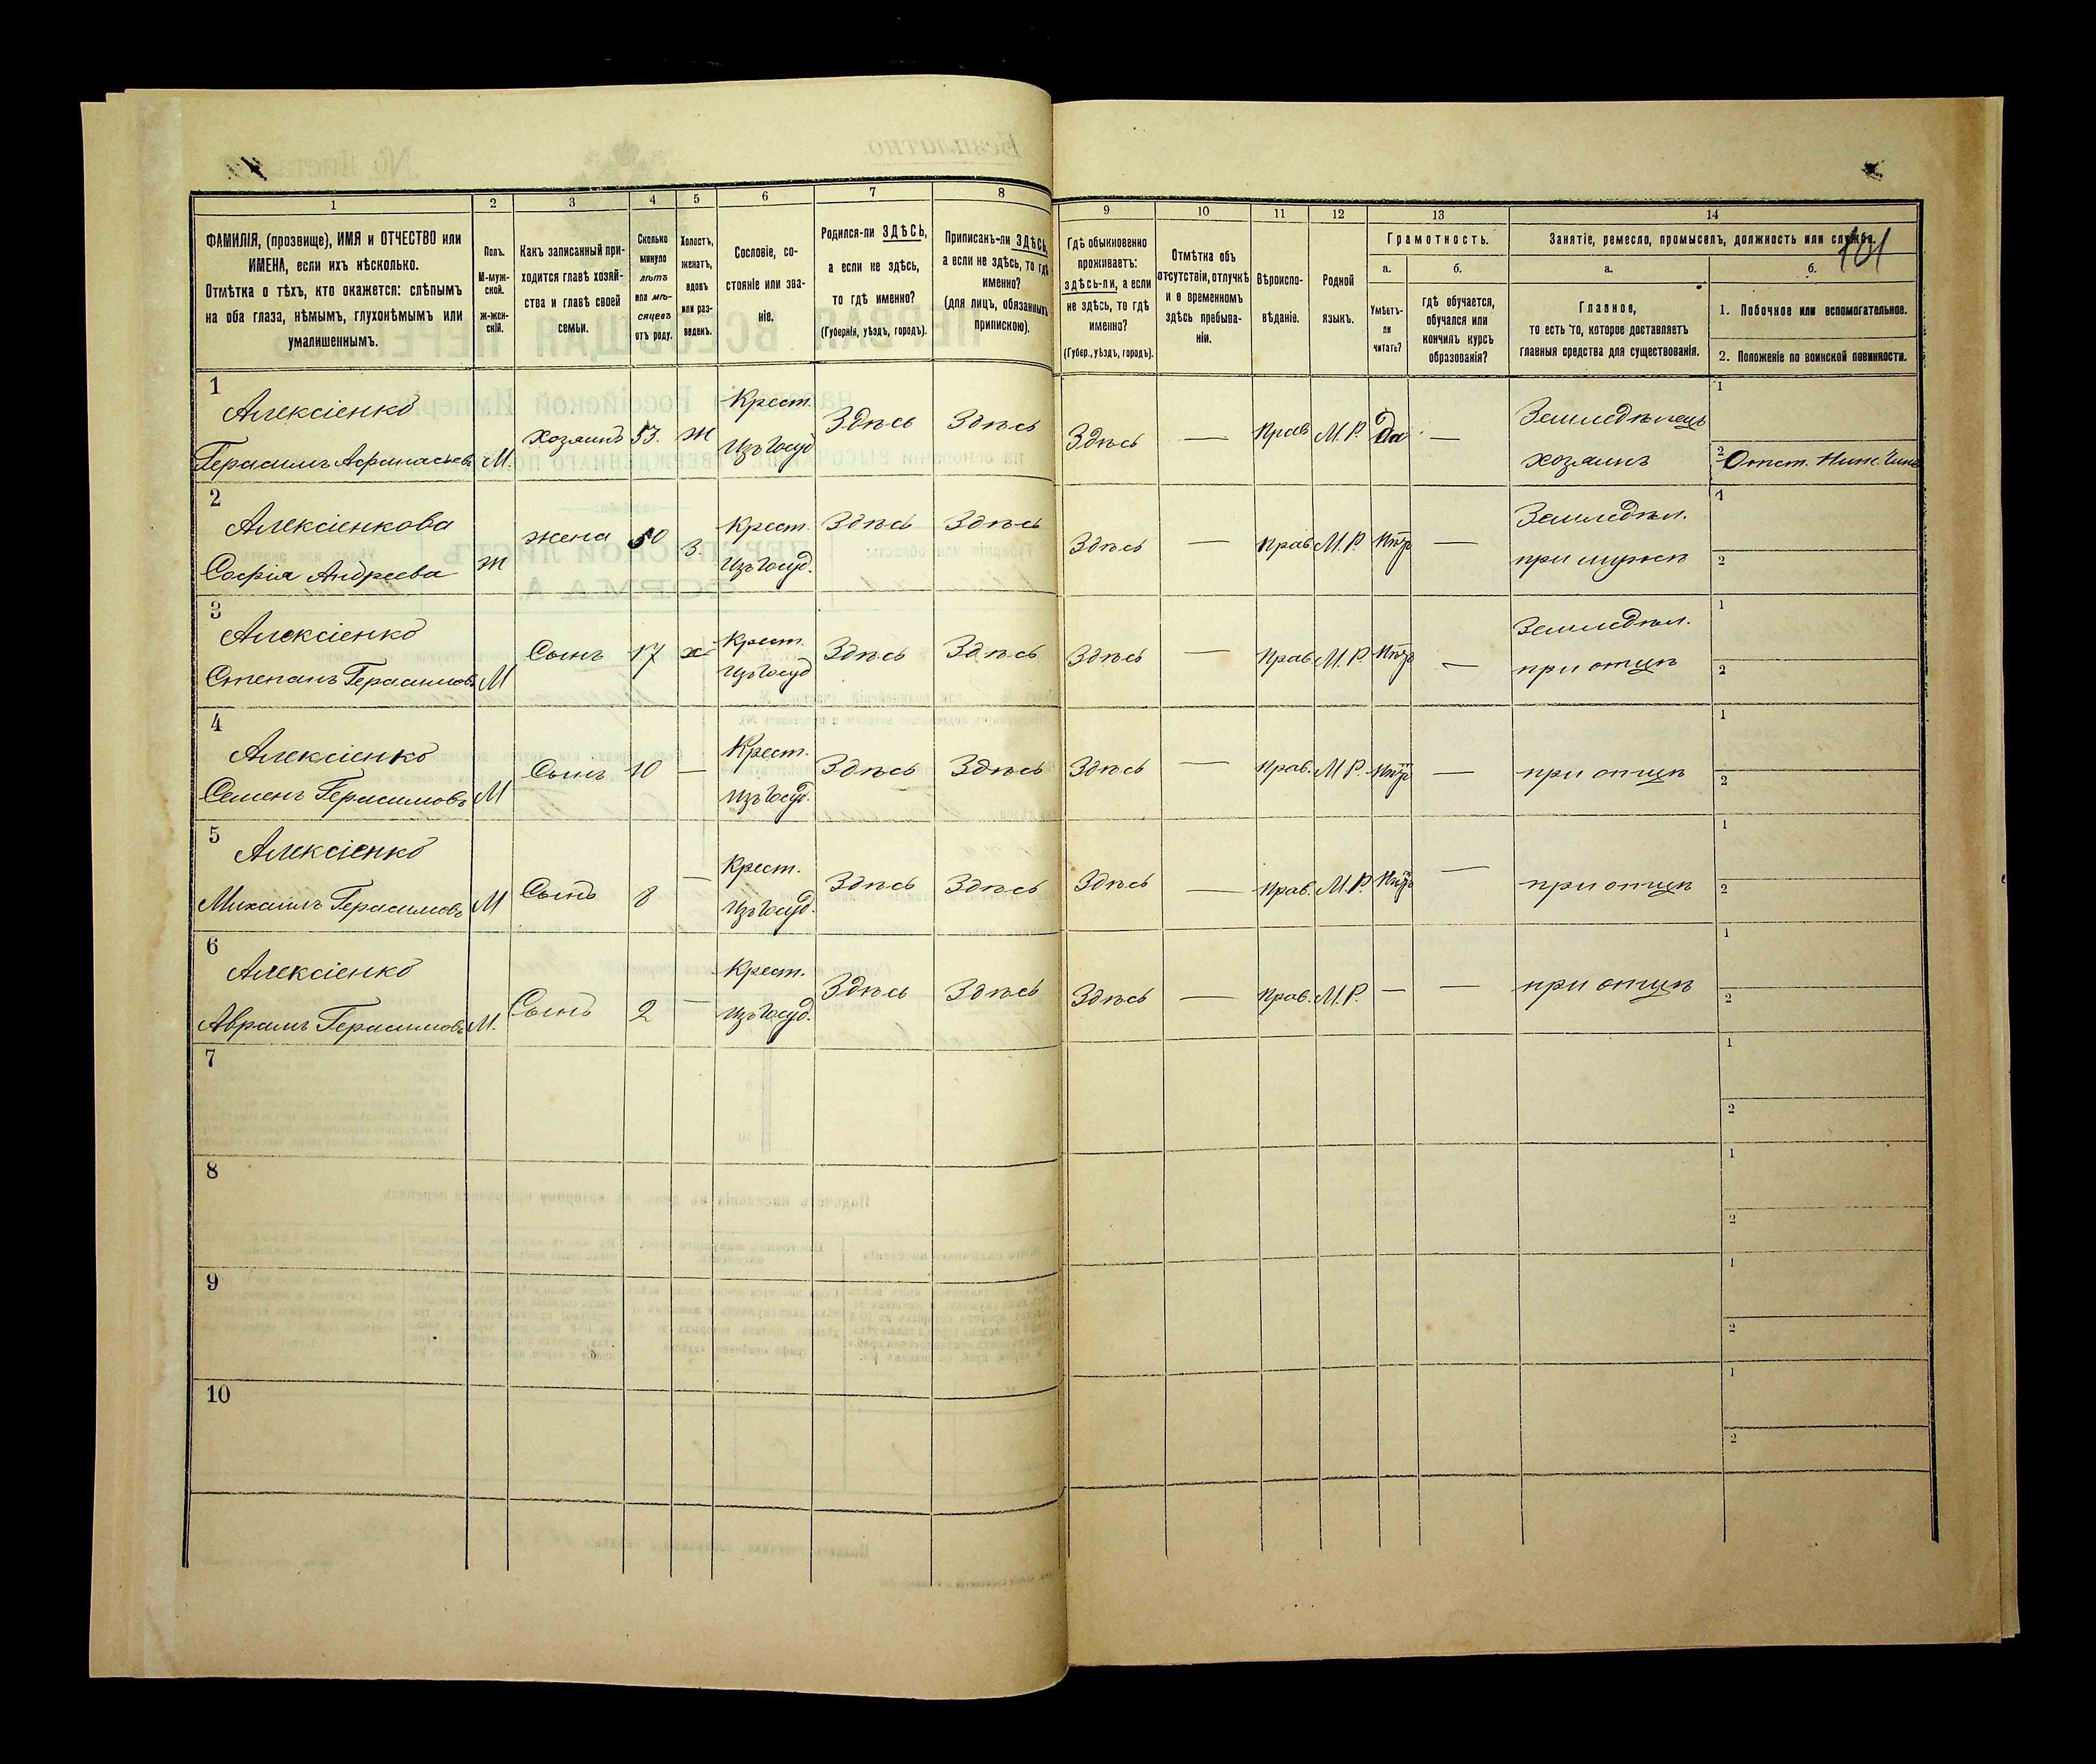 101
1
2
3
4
5
6
7
8
9
10
11
12
13
14
ФАМИЛІЯ, (прозвище), ИМЯ и ОТЧЕСТВО или
ИМЕНА, если ихъ нѣсколько.
Отмѣтка о тѣхъ, кто окажется: слѣпымъ
на оба глаза, нѣмымъ, глухонѣмымъ или
умалишеннымъ.
Полъ.
М-муж-
ской.
Ж-жен-
скій.
Какъ записанный при-
ходится главѣ хозяй-
ства и главѣ своей
семьи.
Сколько
минуло
лѣтъ
или мѣ-
сяцевъ
отъ роду.
Холостъ,
женатъ,
вдовъ
или раз-
веденъ.
Сословіе, со-
стояніе или зва-
ніе.
Родился-ли ЗДѢСЬ,
а если не здѣсь,
то гдѣ именно?
(Губернія, уѣздъ, городъ).
Приписанъ-ли ЗДѢСЬ,
а если не здѣсь, то гдѣ
именно?
(для лицъ, обязанныхъ
припискою).
Гдѣ обыкновенно
проживаетъ:
здѣсь-ли, а если
не здѣсь, то гдѣ
именно?
(Губер., уѣздъ, городъ).
Отмѣтка объ
отсутствіи, отлучкѣ
и о временномъ
здѣсь пребыва-
ніи.
Вѣроиспо-
вѣданіе.
Родной
языкъ.
Грамотность.
а.
Умѣетъ-
ли
читать?
б.
гдѣ обучается,
обучался или
кончилъ курсъ
образованія?
Занятіе, ремесло, промыселъ, должность или служба.
а.
Главное,
то есть то, которое доставляетъ
главныя средства для существованія.
б.
1. Побочное или вспомогательное.
2. Положеніе по воинской повинности.
1
Алексіенко
Герасимъ Афанасьевъ
М.
хозяинъ
53.
Ж
Крест.
Изъ Госуд
Здѣсь
Здѣсь
Здѣсь
—
Прав
М.Р.
Да
—
Земледѣлецъ
хозяинъ
1
2
Отст. Ниж. Чинъ
2
Алексіенкова
Софія Андреева
Ж
жена
50
З.
Крест.
Изъ Госуд.
Здѣсь
Здѣсь
Здѣсь
—
Прав
М.Р.
Нѣтъ
—
Земледѣл.
при мужѣ
1
2
3
Алексіенко
Степанъ Герасимовъ
М
Сынъ
17
х
Крест.
Изъ Госуд
Здѣсь
Здѣсь
Здѣсь
—
Прав
М.Р.
Нѣтъ
—
Земледѣл.
при отцѣ
1
2
4
Алексіенко
Семенъ Герасимовъ
М
Сынъ
10
—
Крест.
Изъ Госуд.
Здѣсь
Здѣсь
Здѣсь
—
Прав.
М.Р.
Нѣтъ
—
при отцѣ
1
2
5
Алексіенко
Михаилъ Герасимовъ
М
Сынъ
8
—
Крест.
Изъ Госуд.
Здѣсь
Здѣсь
Здѣсь
—
Прав.
М.Р.
Нѣтъ
—
при отцѣ
1
2
6
Алексіенко
Аврамъ Герасимовъ
М.
Сынъ
2
—
Крест.
Изъ Госуд.
Здѣсь
Здѣсь
Здѣсь
—
Прав.
М.Р.
—
—
при отцѣ
1
2
7
1
2
8
1
2
9
1
2
10
1
2